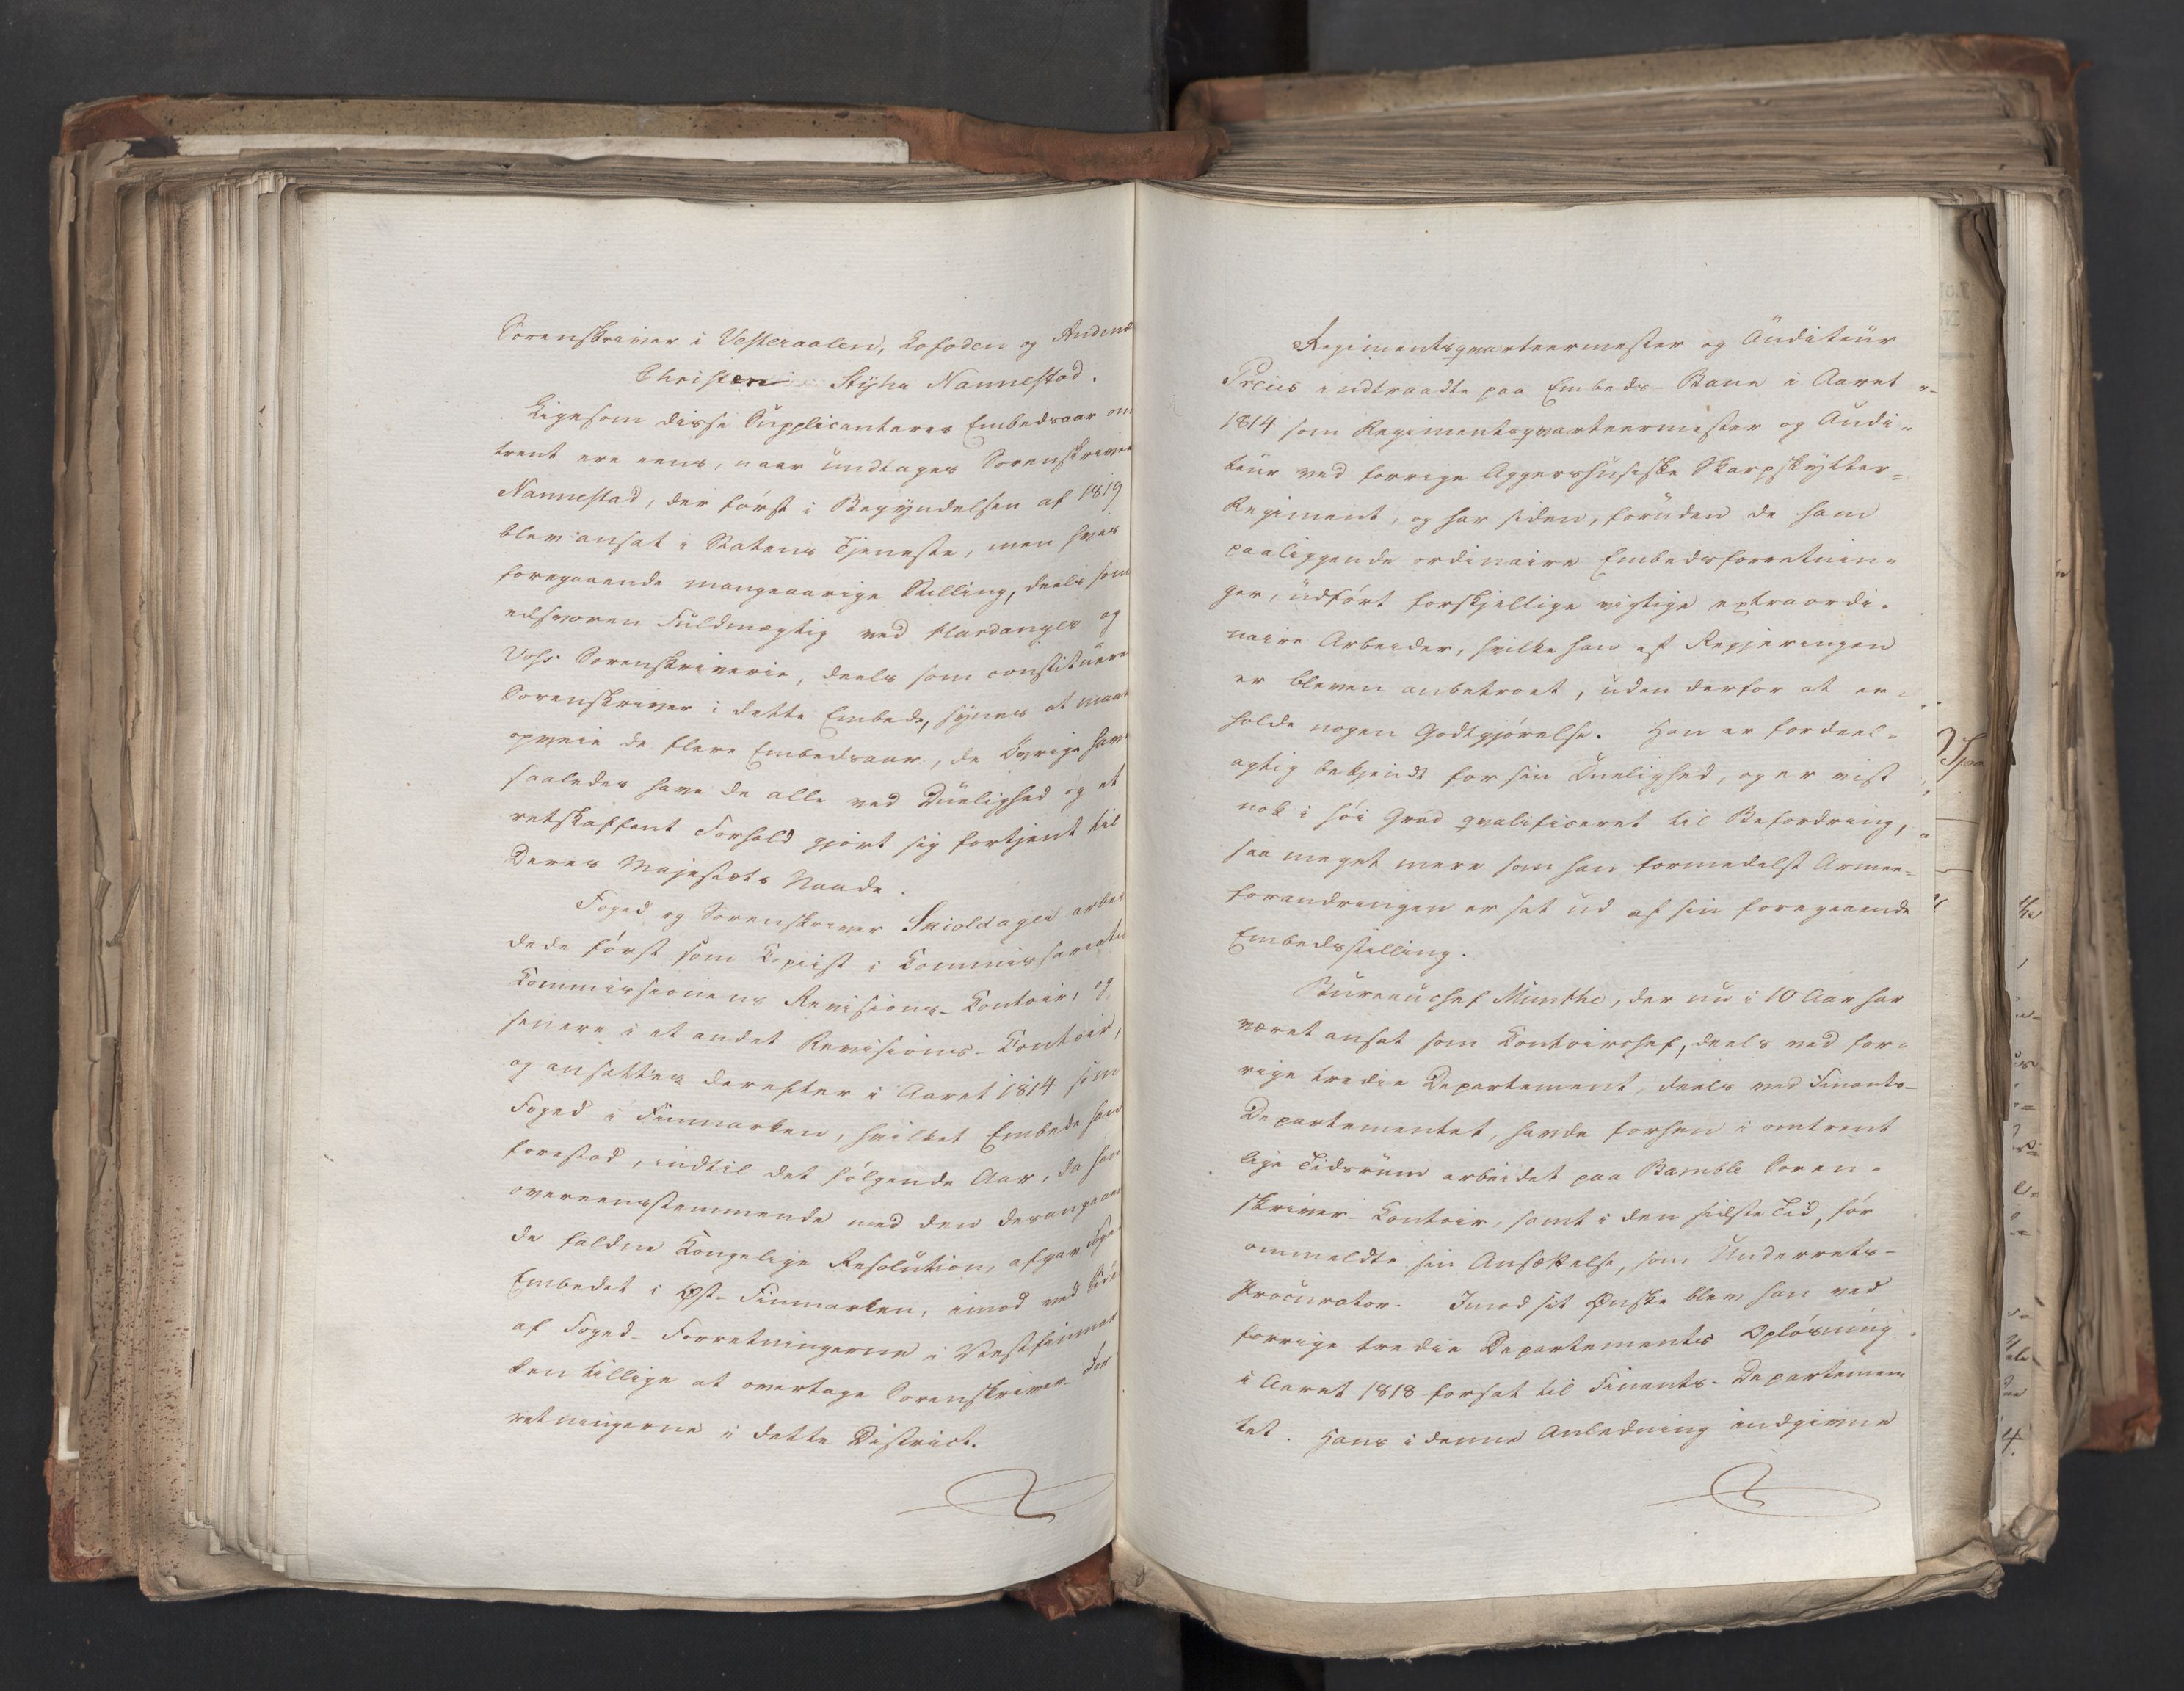 Sorenskriver i Vesteraalen, Lofoden og Andenæ
Christen Styhr Nannestad.
Ligesom disse Supplicanteres Embedsaar om
trent ere eens, naar undtages Sorenskriver
Nannestad, der først i Begyndelsen af 1819
blev ansat i Statens Tjeneste, men hvis
foregaaende mangeaarige Stilling, deels som
edsvoren Fuldmægtig ved Hardanger og
Voss Sorenskriverie, deels som constitueret
Sorenskriver i dette Embede, synes at maat
opveie de flere Embedsaar, de Övrige have
saaledes have de alle ved Duelighed og et
retskaffent Forhold gjort sig fortjent til
Deres Majestæts Naade.
Foged og Sorenskriver Skioldager arbei
dede først som Copiist i Commissariats
Commissionens Revisions-Contoir, og
senere i et andet Revisions-Contoir,
og ansattes derefter i Aaret 1814 som
Foged i Finmarken, hvilket Embede han
forestod, indtil det følgende Aar, da han
overeensstemmende med den desangaaen
de faldne Kongelige Resolution, afgav Foge
Embedet i Øst-Finmarken, imod ved Side
af Foged-Forretningerne i Vestfinmar
ken tillige at overtage Sorenskriver-For
retningerne i dette District.
Regimentsqvarteermester og Auditeur
Preus indtraadte paa Embeds-Bane i Aaret
1814 som Regimentsqvarteermester og Audi-
teur ved forrige Aggershusiske Skarpskytter-
Regiment, og har siden, foruden de ham
paaliggende ordinaire Embedsforretnin-
ger, udført forskjellige vigtige extraordi-
naire Arbeider, hvilke han af Regjeringen
er bleven anbetroet, uden derfor at er-
holde nogen Godtgjørelse. Han er fordeel-
agtig bekjendt for sin Duelighed, og er vist
nok i høi Grad qvalificeret til Befordring,
saa meget mere som han formedelst Armee-
forandringen er sat ud af sin foregaaende
Embedsstilling.
Bureauchef Munthe, der nu i 10 Aar har
været ansat som Contoirchef, deels ved for-
rige tredie Departement, deels ved Finants-
Departementet, havde forhen i omtrent
lige Tidsrum arbeidet paa Bamble Soren-
skriver-Contoir, samt i den sidste Tid, før
ommeldte sin Ansættelse, som Underrets-
Procurator. Imod sit Ønske blev han ved
forrige tredie Departements Opløsning
i Aaret 1818 forsat til Finants-Departemen
tet. Hans i denne Anledning indgivne